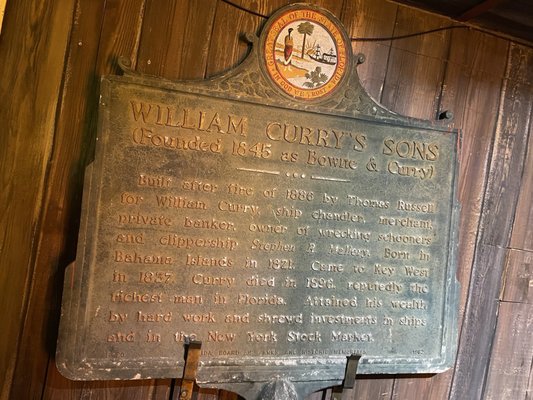 GREAT SEAL OF THE STATE OF FLORIDA
IN GOD WE TRUST
WILLIAM CURRY'S SONS
(Founded 1845 as Bowne & Curry)
Built after fire of 1886 by Thomas Russell
for William Curry, ship chandler, merchant,
private banker, owner of wrecking schooners
and clippership Stephen R. Mallory. Born in
Bahama Islands in 1821. Came to Key West
in 1837. Curry died in 1896, reputedly the
richest man in Florida. Attained his wealth
by hard work and shrewd investments in ships
and in the New York Stock Market.
BOARD